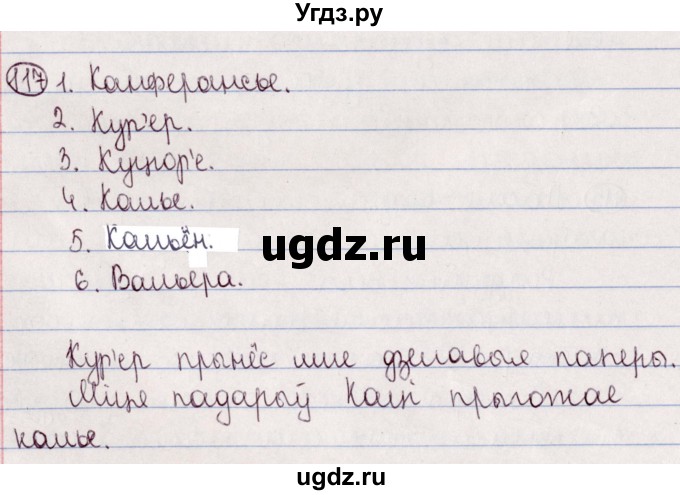 Угдз.ру
117 1. Канферансье.
2. Кур'ер.
3. Куцюр'е.
4. Калье.
5. Кальён.
6. Вальера.
ugdz.ru
Кур'ер прынёс мне дзелавыя паперы.
Міця падарыў Каці прыгожае
калье.
ugdz.ru